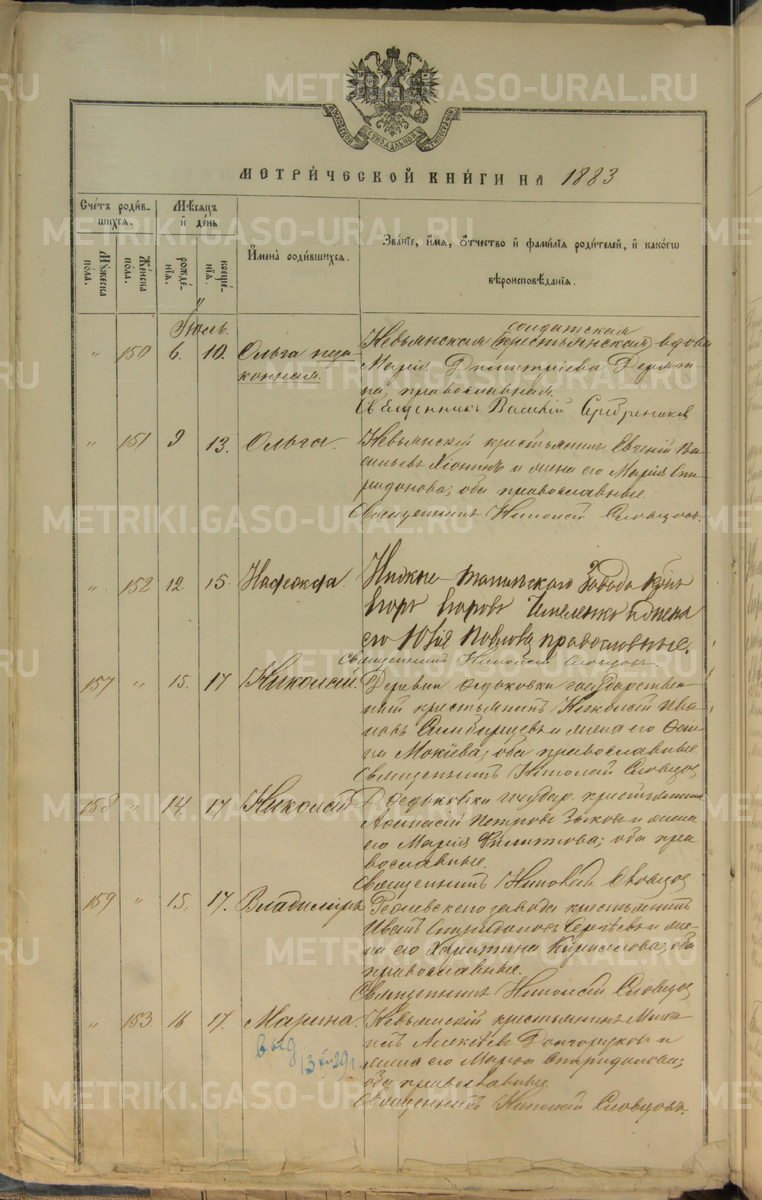 METRIKI.GASO-URAL.RU
МОСКОВСКОЙ СѴНОДАЛЬНОЙ ТИПОГРАФІИ
МЕТРИ́ЧЕСКОЙ КНИ́ГИ НА 1883
Сче́тъ роди́в-
шихся.
Мꙋ́жеска по́ла.
Же́нска по́ла.
Мѣ́сяцъ и҆ де́нь
рожде́-
нїѧ.
креще́-
нїѧ.
И҆мена̀ роди́вшихся.
Зва́нїе, и҆́мѧ, ѻ҆́тчество и҆ фами́лїѧ роди́телей, и҆ како́гѡ
вѣроисповѣ́данїѧ.
Іюль.
солдатская
" 150 6. 10. Ольга неза- Невьянская крестьянская вдова
конная. Марія Димитріева
на, православная.
Священникъ Василій Серебренников
" 151 9 13. Ольга. Невьянскій крестьянинъ Евгеній Ва-
сильевъ и жена его Марія Спи-
ридонова; оба православные.
Священникъ Николай Словцовъ.
" 152 12. 15. Надежда Нижне-Тагильского Завода
Егоръ Егоровъ и жена
его Юлія Павлова православные.
Священникъ Николай Словцовъ.
157 " 15. 17 Николай Деревни Федьковки государствен-
ный крестьянинъ Николай Ива-
новъ и жена его
Мокіева; оба православные
Священникъ Николай Словцов
158 " 14. 17 Николай Д. Федьковки государ. крестьянинъ
Афанасій Петровъ Зыковъ и жена
его Марія Филиппова; оба пра
вославные.
Священникъ Николай Словцов
159 " 15. 17. Владиміръ завода крестьянинъ
Иванъ Спиридоновъ Сергѣевъ и же-
на его Харитина Кириллова; оба
православные.
Священникъ Николай Словцов
" 153 16 17. Марина. Невьянскій крестьянинъ Миха-
илъ Алексѣевъ Долгоруковъ и
жена его Марѳа Спиридонова;
оба православны
Священникъ Николай Словцовъ.
выд